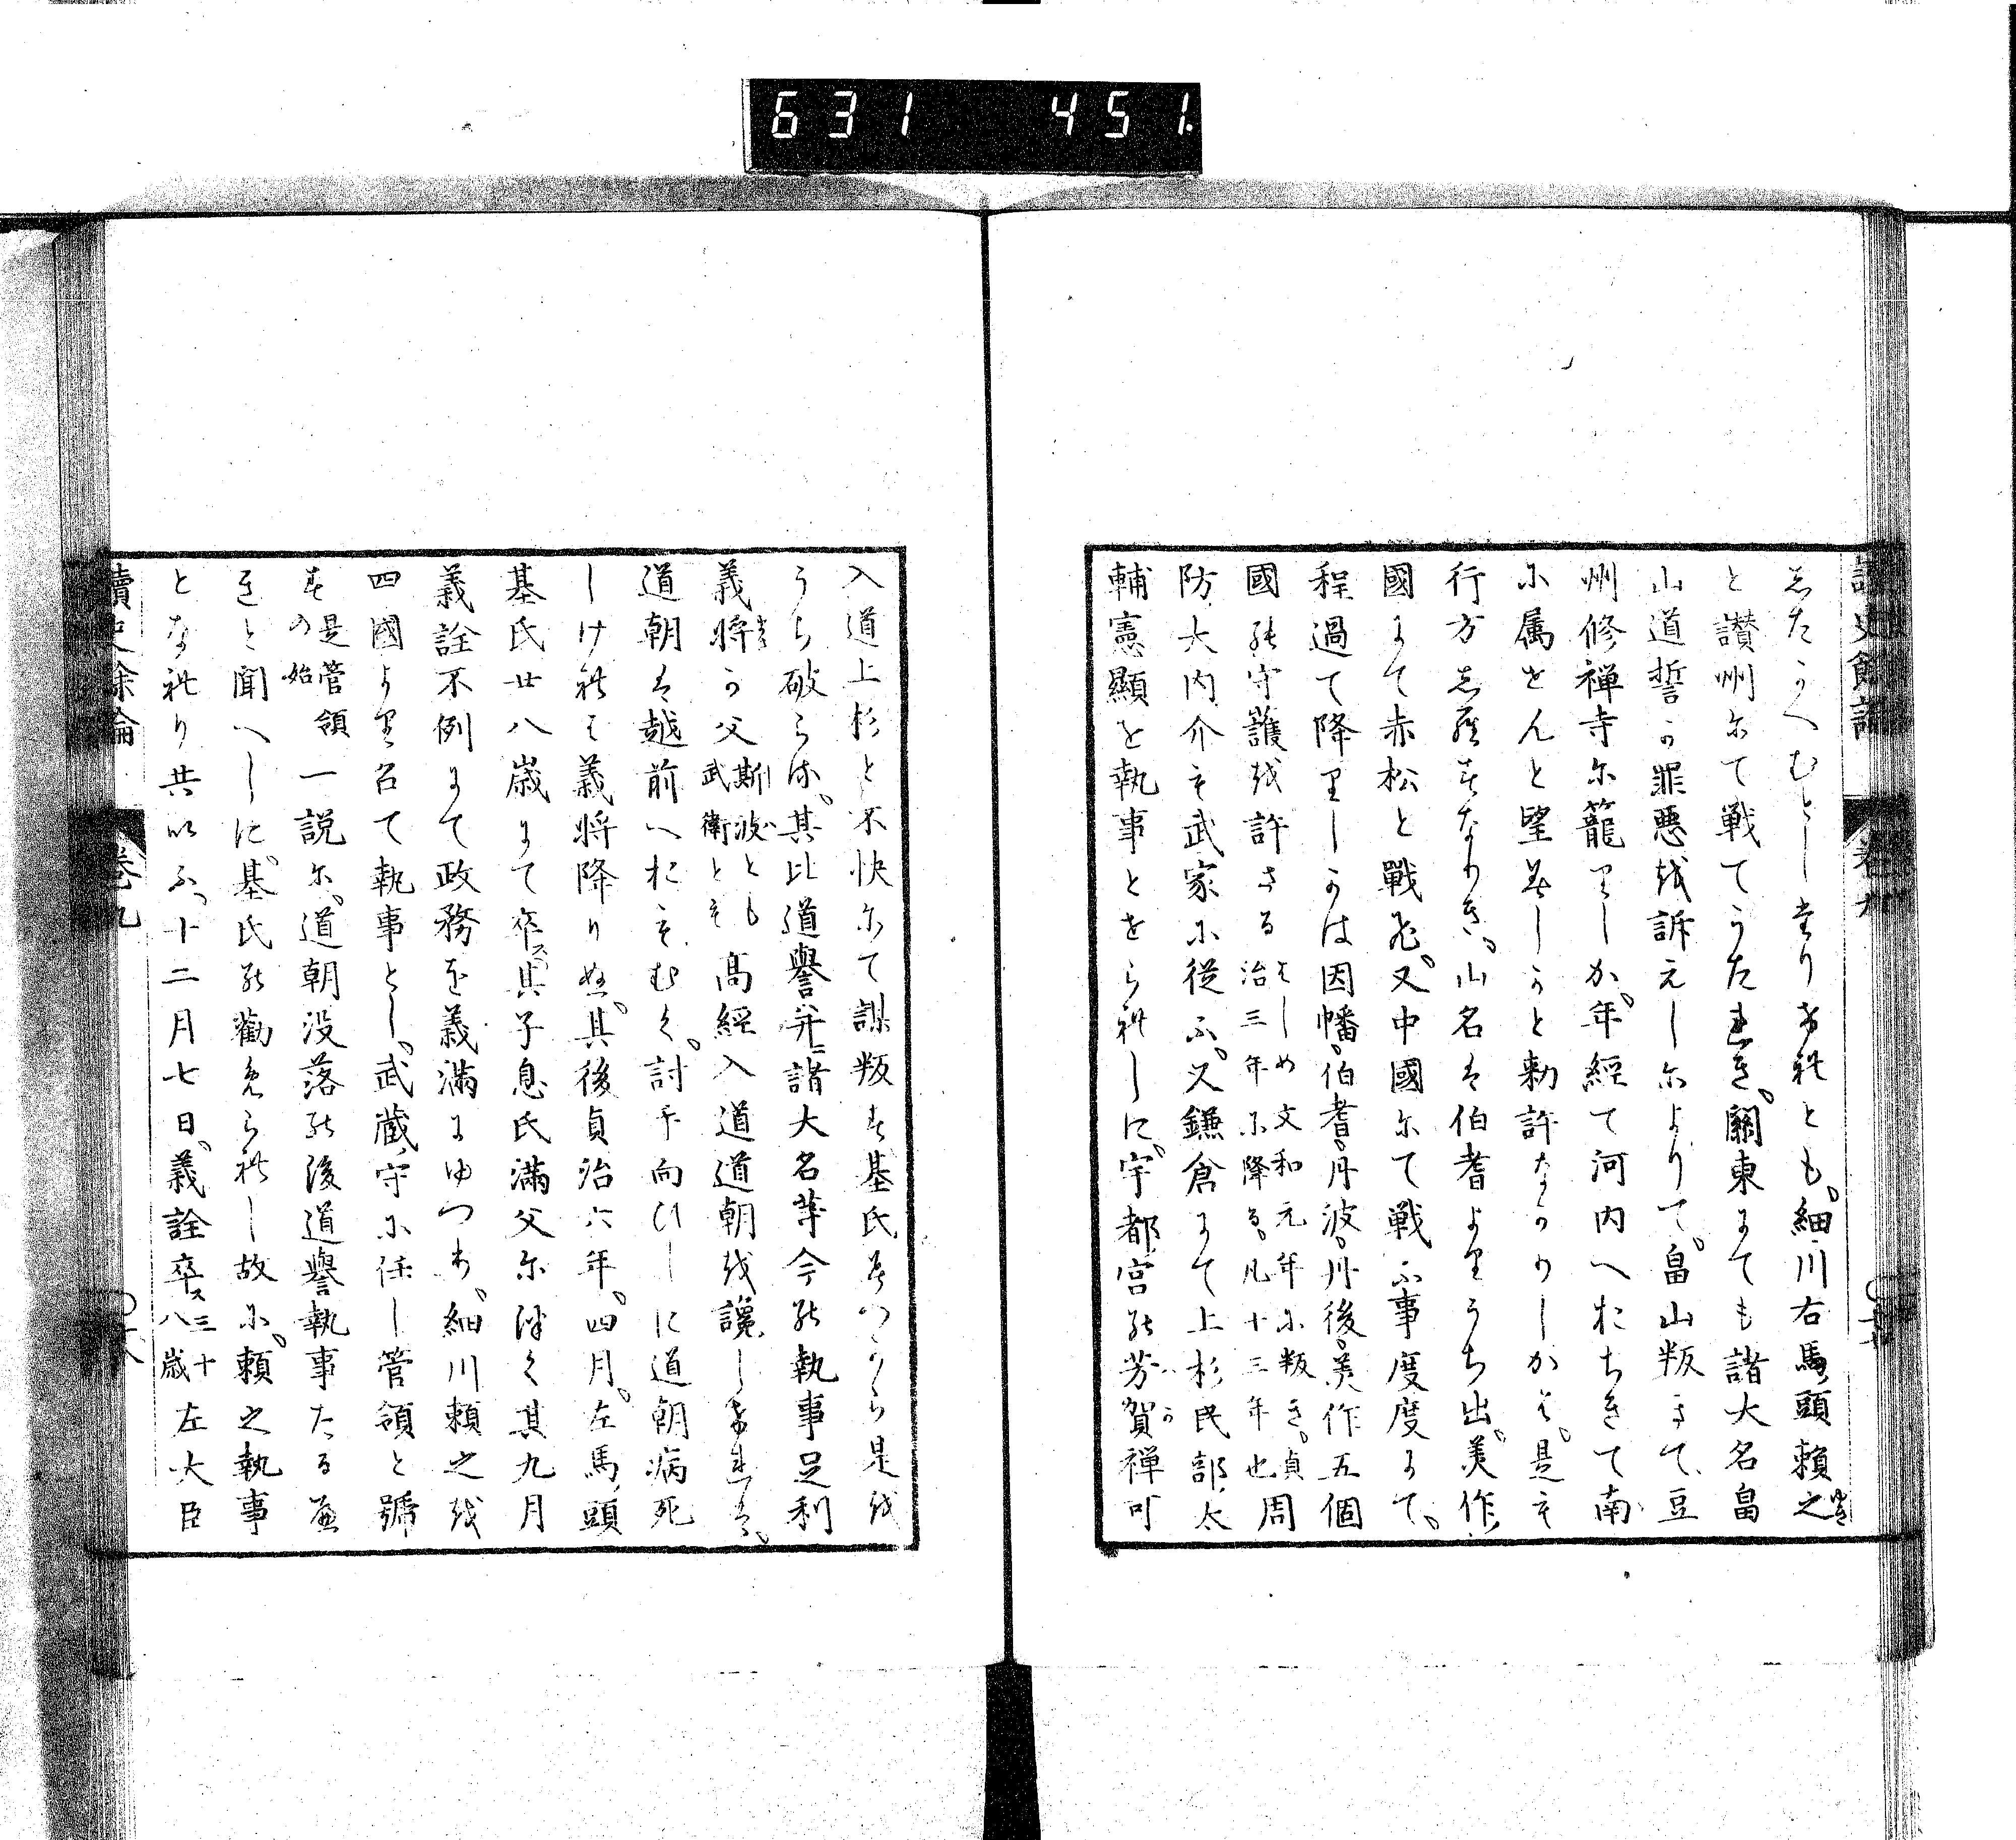 631 451.
讀史餘論 巻九
志たかへむとしたりけれとも。細川右馬頭頼之
と讃州尓て戦てうたれき。關東にても諸大名畠
山道誓の罪惡越訴えし尓よりて。畠山叛きて、豆
州修禅寺尓籠りしか。年經て河内へおちきて南
尓属せんと望美しかと勅許なかりしかは。是も
行方志らすなりき。山名は伯耆よりうち出。美作
國にて赤松と戰飛。又中國尓て戰ふ事度度にて。
程過て降りしかは因幡。伯耆。丹波。丹後。美作五個
國能守護越許さる はしめ文和元年尓叛き。貞治三年尓降る。凡十三年也 周
防、大内介も武家尓從ふ。又鎌倉にて上杉民部太
輔憲顯を執事とせられしに。宇都宮能芳賀禅可
入道上杉と不快尓て謀叛す基氏みつから是越
うち破らる。其比道譽并ニ諸大名等今能執事足利
義將の父 斯波とも武衛とも 高經入道道朝越讒しけれは、
道朝は越前へおもむく。討手向ひしに道朝病死
しけれは義將降りぬ。其後貞治六年。四月。左馬頭
基氏廿八歳にて卒ス。其子息氏滿父尓継く其九月
義詮不例にて政務を義滿にゆつり。細川頼之越
四國より召て執事とし。武蔵守尓任し管領と號
す 是管領の始 一説尓。道朝没落能後道譽執事たる遍
きと聞へしに。基氏能勸免られし故尓。頼之執事
となれり共いふ。十二月七日。義詮卒ス 三十八歳 左大臣
讀史餘論 巻九